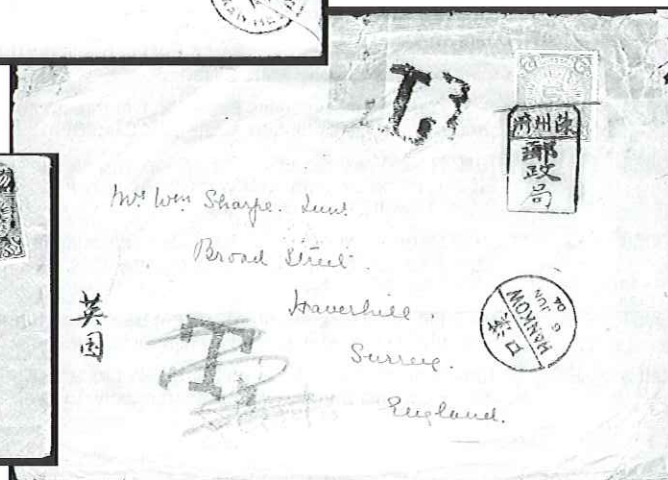 T.
郵政局
Mr Wm Sharpe. Junr
Broad Street.
Haverhill
Surrey.
England.
英国
T.
HANKOW
6 JUN 04
漢口